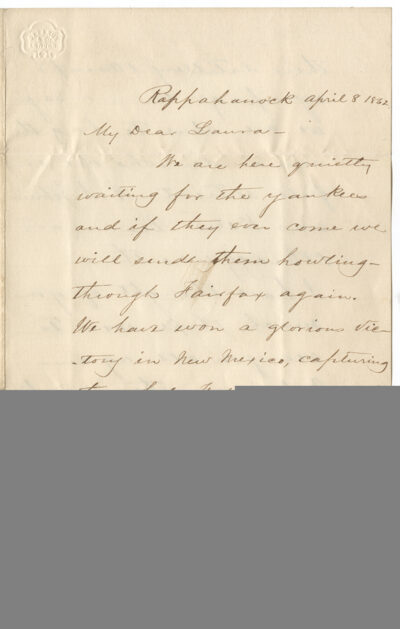 Rappahanock April 8 1862
My Dear Laura -
We are here quietly
waiting for the yankees
and if they ever come we
will send them howling -
through Fairfax again.
We have won a glorious Vic-
-tory in New Mexico, capturing